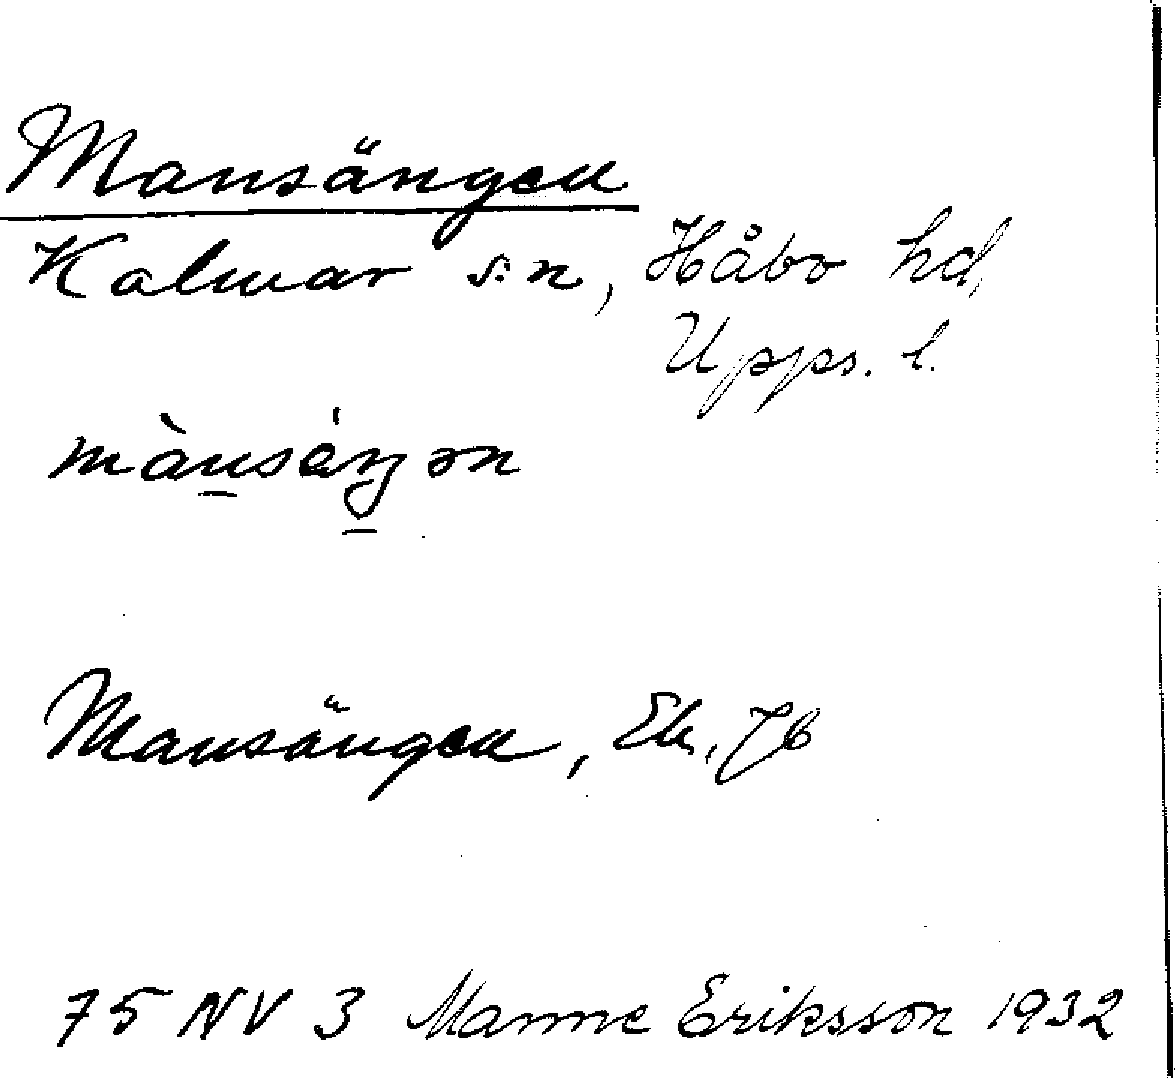 Mansängen
Kalmar s:n, Håbo hd,
Upps. l.
mànsáŋən
Mansängen, Ek, Jb
75 NV 3 Manne Eriksson 1932